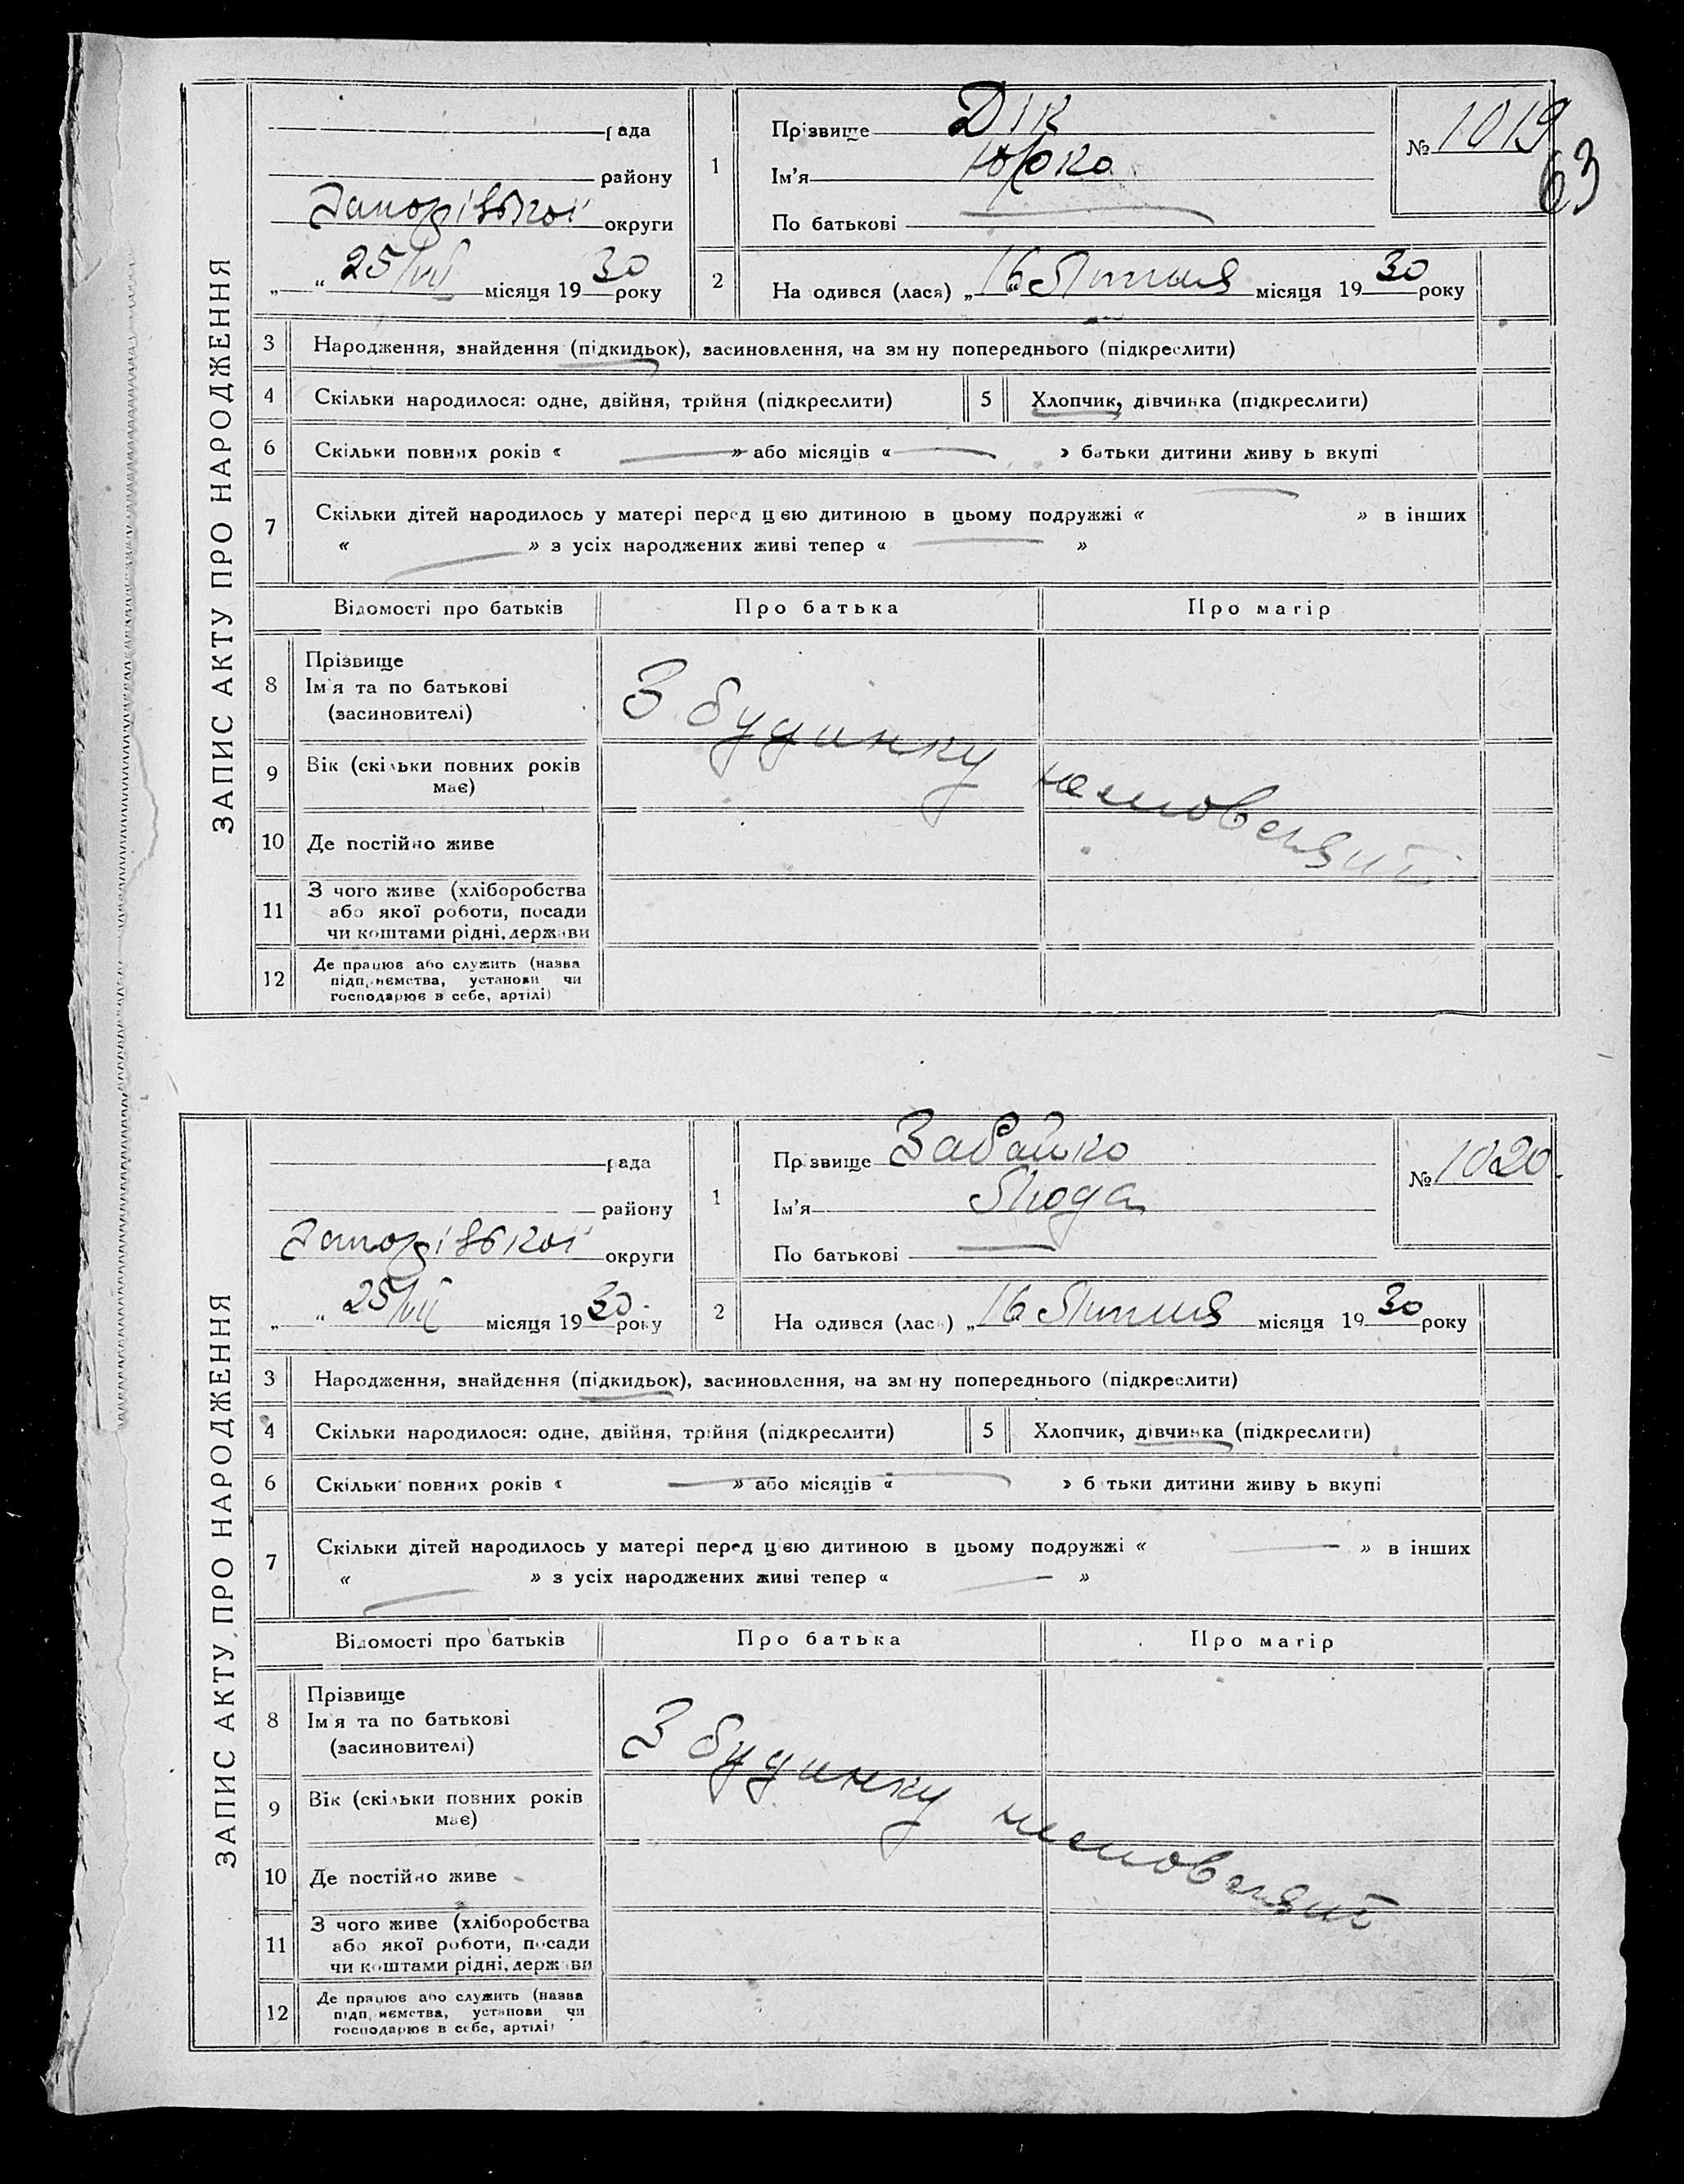 ЗАПИС АКТУ ПРО НАРОДЖЕННЯ
рада
району
Запорізької округи
„ “ 25/VII місяця 1930 року
1
Прізвище Дік
Ім'я Юрко
По батькові
№ 1019
63
2
Народився (лася) „16“ Липня місяця 1930 року
3 Народження, знайдення (підкидьок), засиновлення, на зміну попереднього (підкреслити)
4 Скільки народилося: одне, двійня, трійня (підкреслити)
5 Хлопчик, дівчинка (підкреслити)
6 Скільки повних років « » або місяців « » батьки дитини живуть вкупі
7 Скільки дітей народилось у матері перед цією дитиною в цьому подружжі « » в інших
« » з усіх народжених живі тепер « »
Відомості про батьків Про батька Про матір
8 Прізвище
Ім'я та по батькові
(засиновителі)
З будинку немовлят
9 Вік (скільки повних років
має)
10 Де постійно живе
11 З чого живе (хліборобства
або якої роботи, посади
чи коштами рідні, держави
12 Де працює або служить (назва
підприємства, установи чи
господарює в себе, артілі)
ЗАПИС АКТУ ПРО НАРОДЖЕННЯ
рада
району
Запорізької округи
„ “ 25/VII місяця 1930 року
1
Прізвище Забайко
Ім'я
По батькові
№ 1020
2
Народився (лася) „16 Липня місяця 1930 року
3 Народження, знайдення (підкидьок), засиновлення, на зміну попереднього (підкреслити)
4 Скільки народилося: одне, двійня, трійня (підкреслити)
5 Хлопчик, дівчинка (підкреслити)
6 Скільки повних років « » або місяців « » батьки дитини живуть вкупі
7 Скільки дітей народилось у матері перед цією дитиною в цьому подружжі « » в інших
« » з усіх народжених живі тепер « »
Відомості про батьків Про батька Про матір
8 Прізвище
Ім'я та по батькові
(засиновителі)
З будинку немовлят
9 Вік (скільки повних років
має)
10 Де постійно живе
11 З чого живе (хліборобства
або якої роботи, посади
чи коштами рідні, держави
12 Де працює або служить (назва
підприємства, установи чи
господарює в себе, артілі)